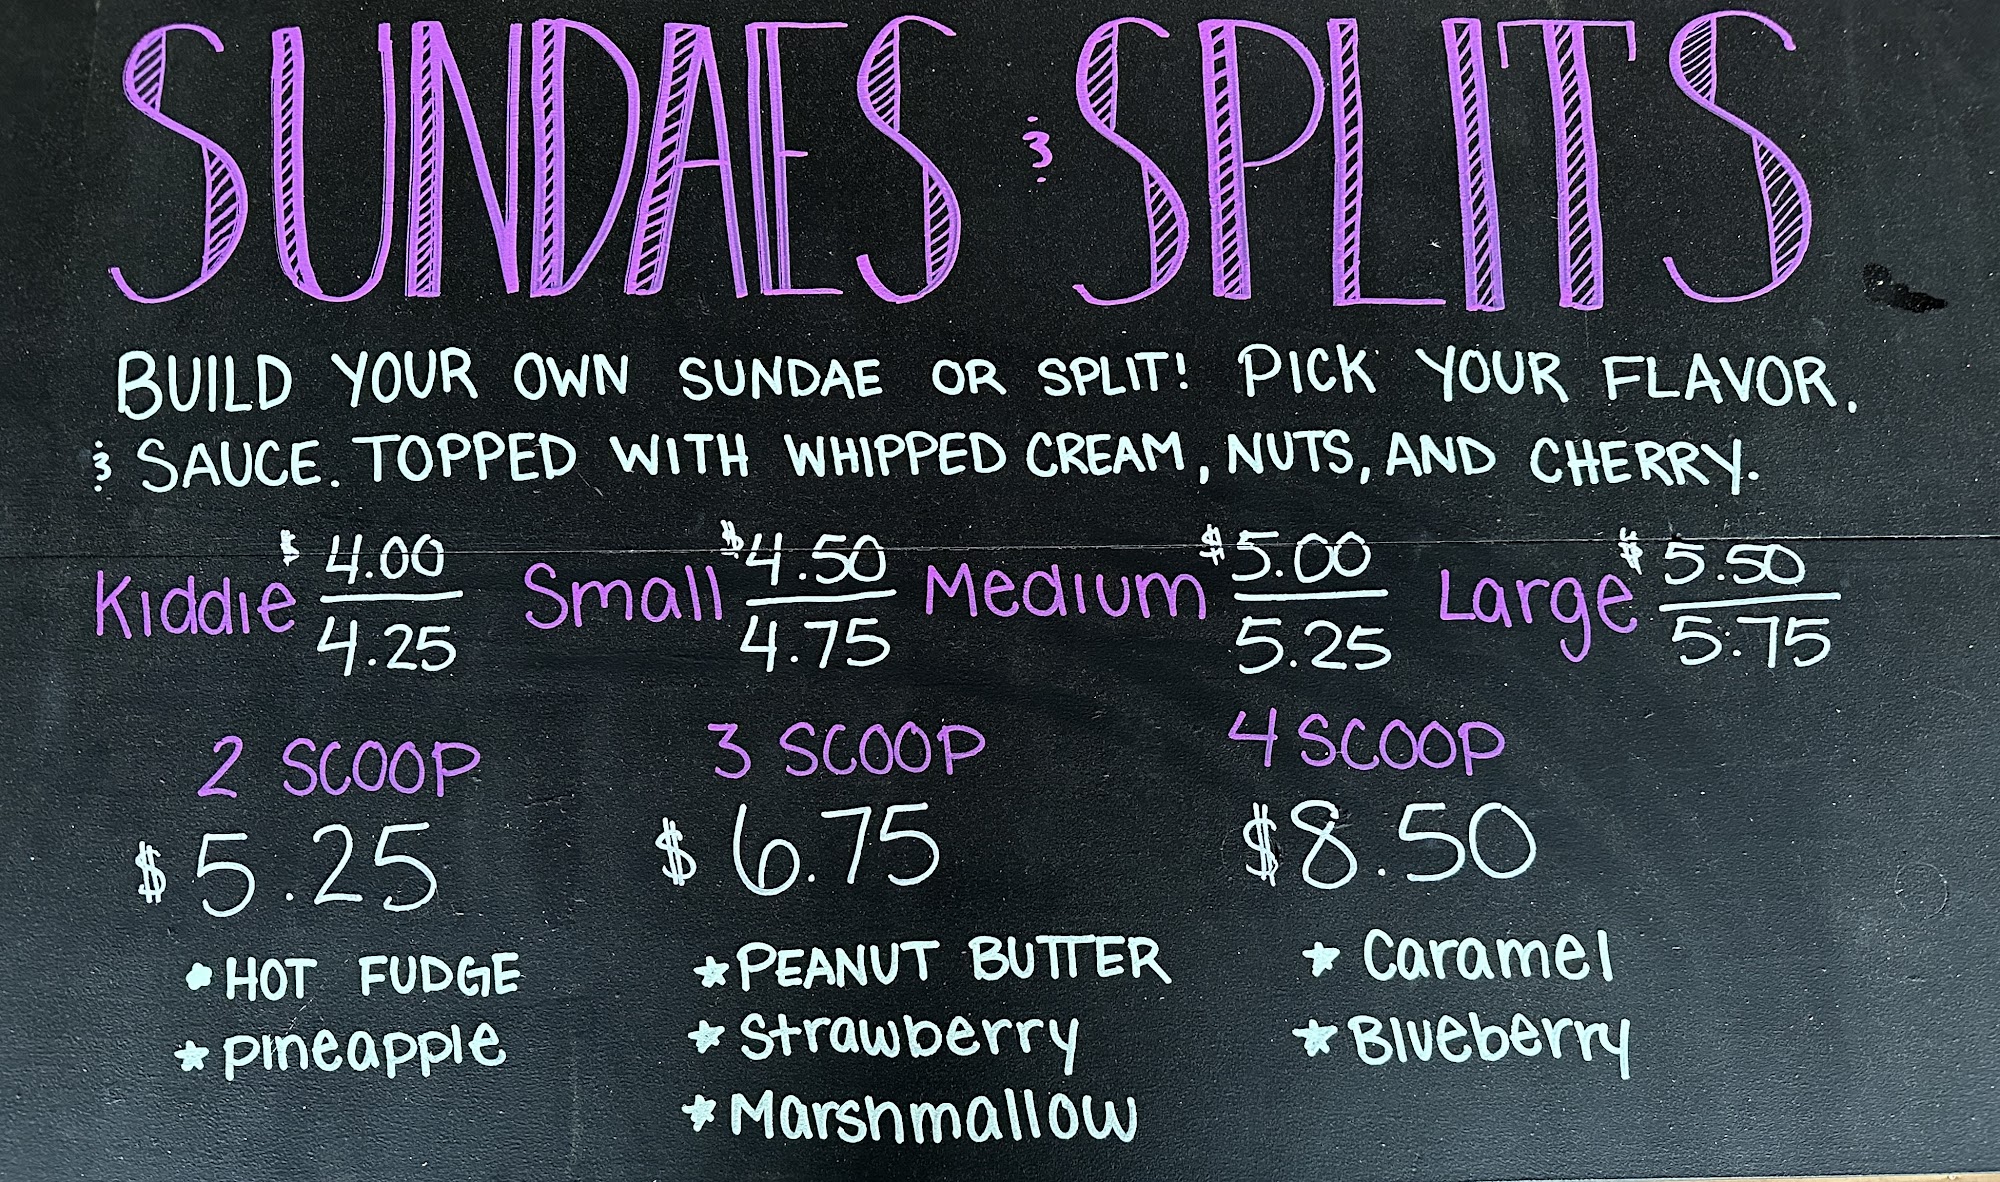 SUNDAES & SPLITS
BUILD YOUR OWN SUNDAE OR SPLIT! PICK YOUR FLAVOR.
& SAUCE. TOPPED WITH WHIPPED CREAM, NUTS, AND CHERRY.
Kiddie $4.00/4.25 Small $4.50/4.75 Medium $5.00/5.25 Large $5.50/5.75
2 SCOOP 3 SCOOP 4 SCOOP
$5.25 $6.75 $8.50
* HOT FUDGE * PEANUT BUTTER * Caramel
* pineapple * Strawberry * Blueberry
* Marshmallow